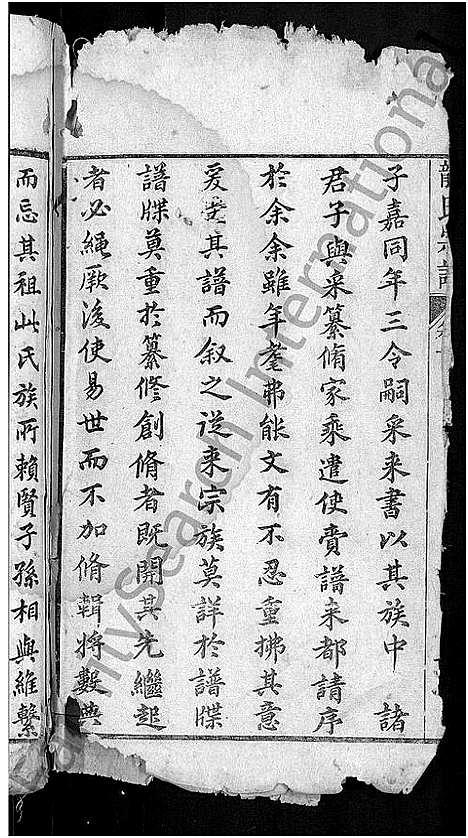 龍氏宗譜
子嘉同年三令嗣采來書以其族中　諸
君子與采纂脩家乘遣使賫譜来都請序
於余余雖年耄弗能文有不忍重拂其意
爰其譜而叙之从来宗族莫詳於譜牒
譜牒莫重於纂修創脩者既開其先繼起
者必繩厥後使易世而不加脩輯將數典
而忘其祖此氏族所賴賢子孫相與維繫
FamilySearch International